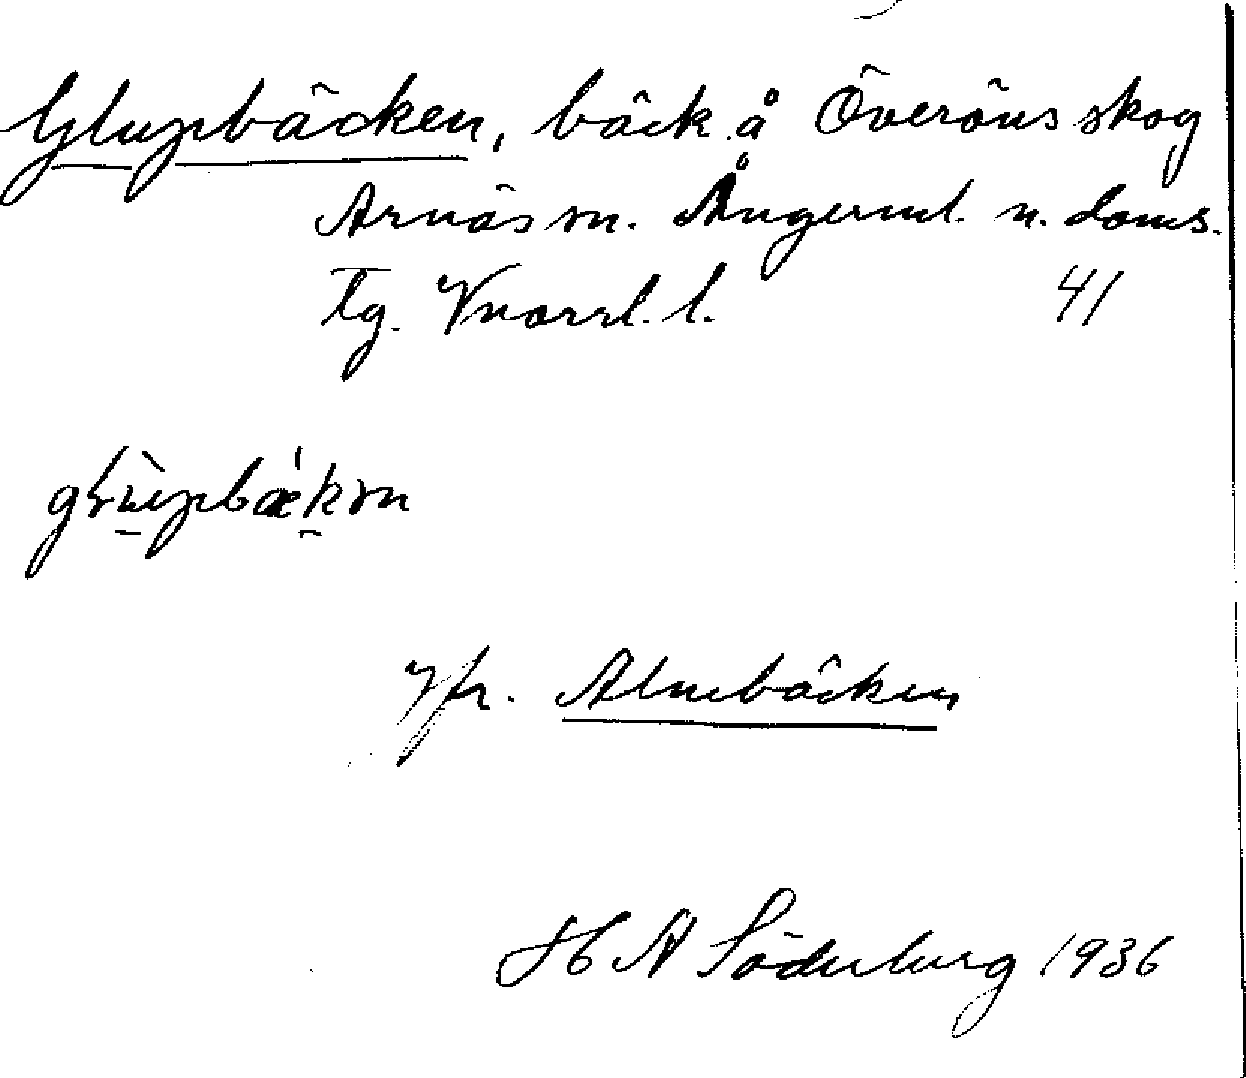 Glupbäcken, bäck å Överöns skog
Arnäs sn. Ångerml. n. doms.
tg. Vnorrl. l. 41
glùpbækən
Jfr. Alnebäcken
H A Söderberg 1936